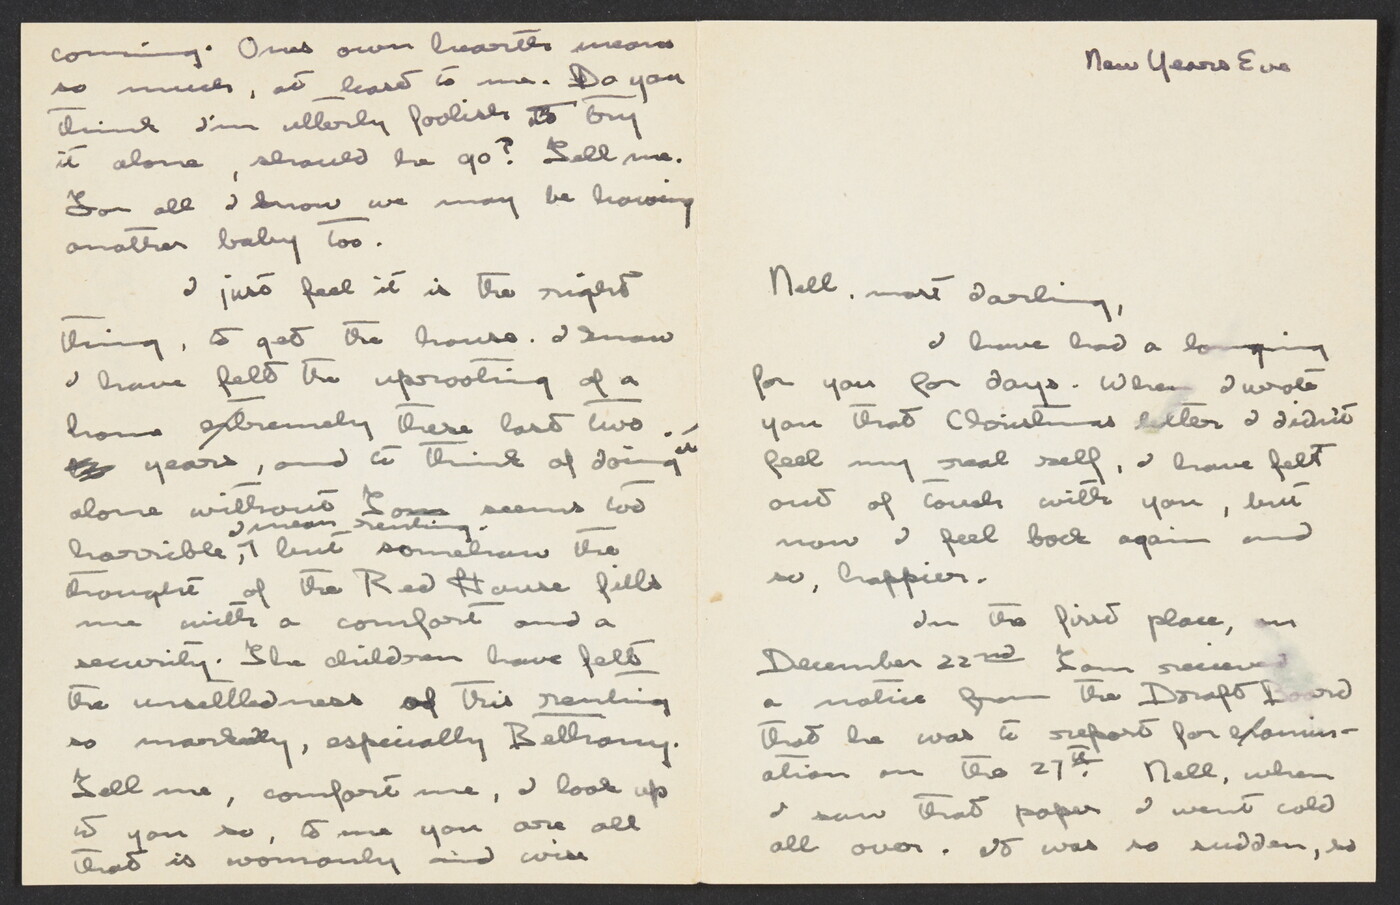 coming. Ones own hearth means
so much, at least to me. Do you
think I'm utterly foolish to try
it alone, should he go? Tell me.
For all I know we may be having
another baby too.
I just feel it is the right
thing, to get the house. I know
I have felt the uprooting of a
home extremely these last two
years, and to think of doing it
alone without Tom seems too
I mean renting.
horrible, but somehow the
thought of the Red House fills
me with a comfort and a
security. The children have felt
the unsettledness of this renting
so markedly, especially Bethany.
Tell me, comfort me, I look up
to you so, to me you are all
that is womanly and wise
New Years Eve
Nell, most darling,
I have had a longing
for you for days. When I wrote
you that Christmas letter I didn't
feel my real self, I have felt
out of touch with you, but
now I feel back again and
so, happier.
In the first place, on
December 22nd Tom recieved
a notice from the Draft Board
that he was to report for examin-
ation on the 27th. Nell, when
I saw that paper I went cold
all over. It was so sudden, so